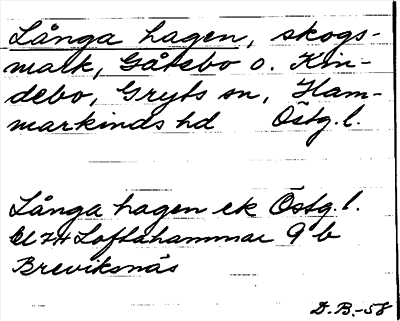 Långa hagen, skogs-
mark, Gåtebo o. Kin-
debo, Gryts sn, Ham-
markinds hd Östg. l.
Långa hagen ek Östg. l.
Loftahammar 9 b
Breviksnäs
D. B. -58